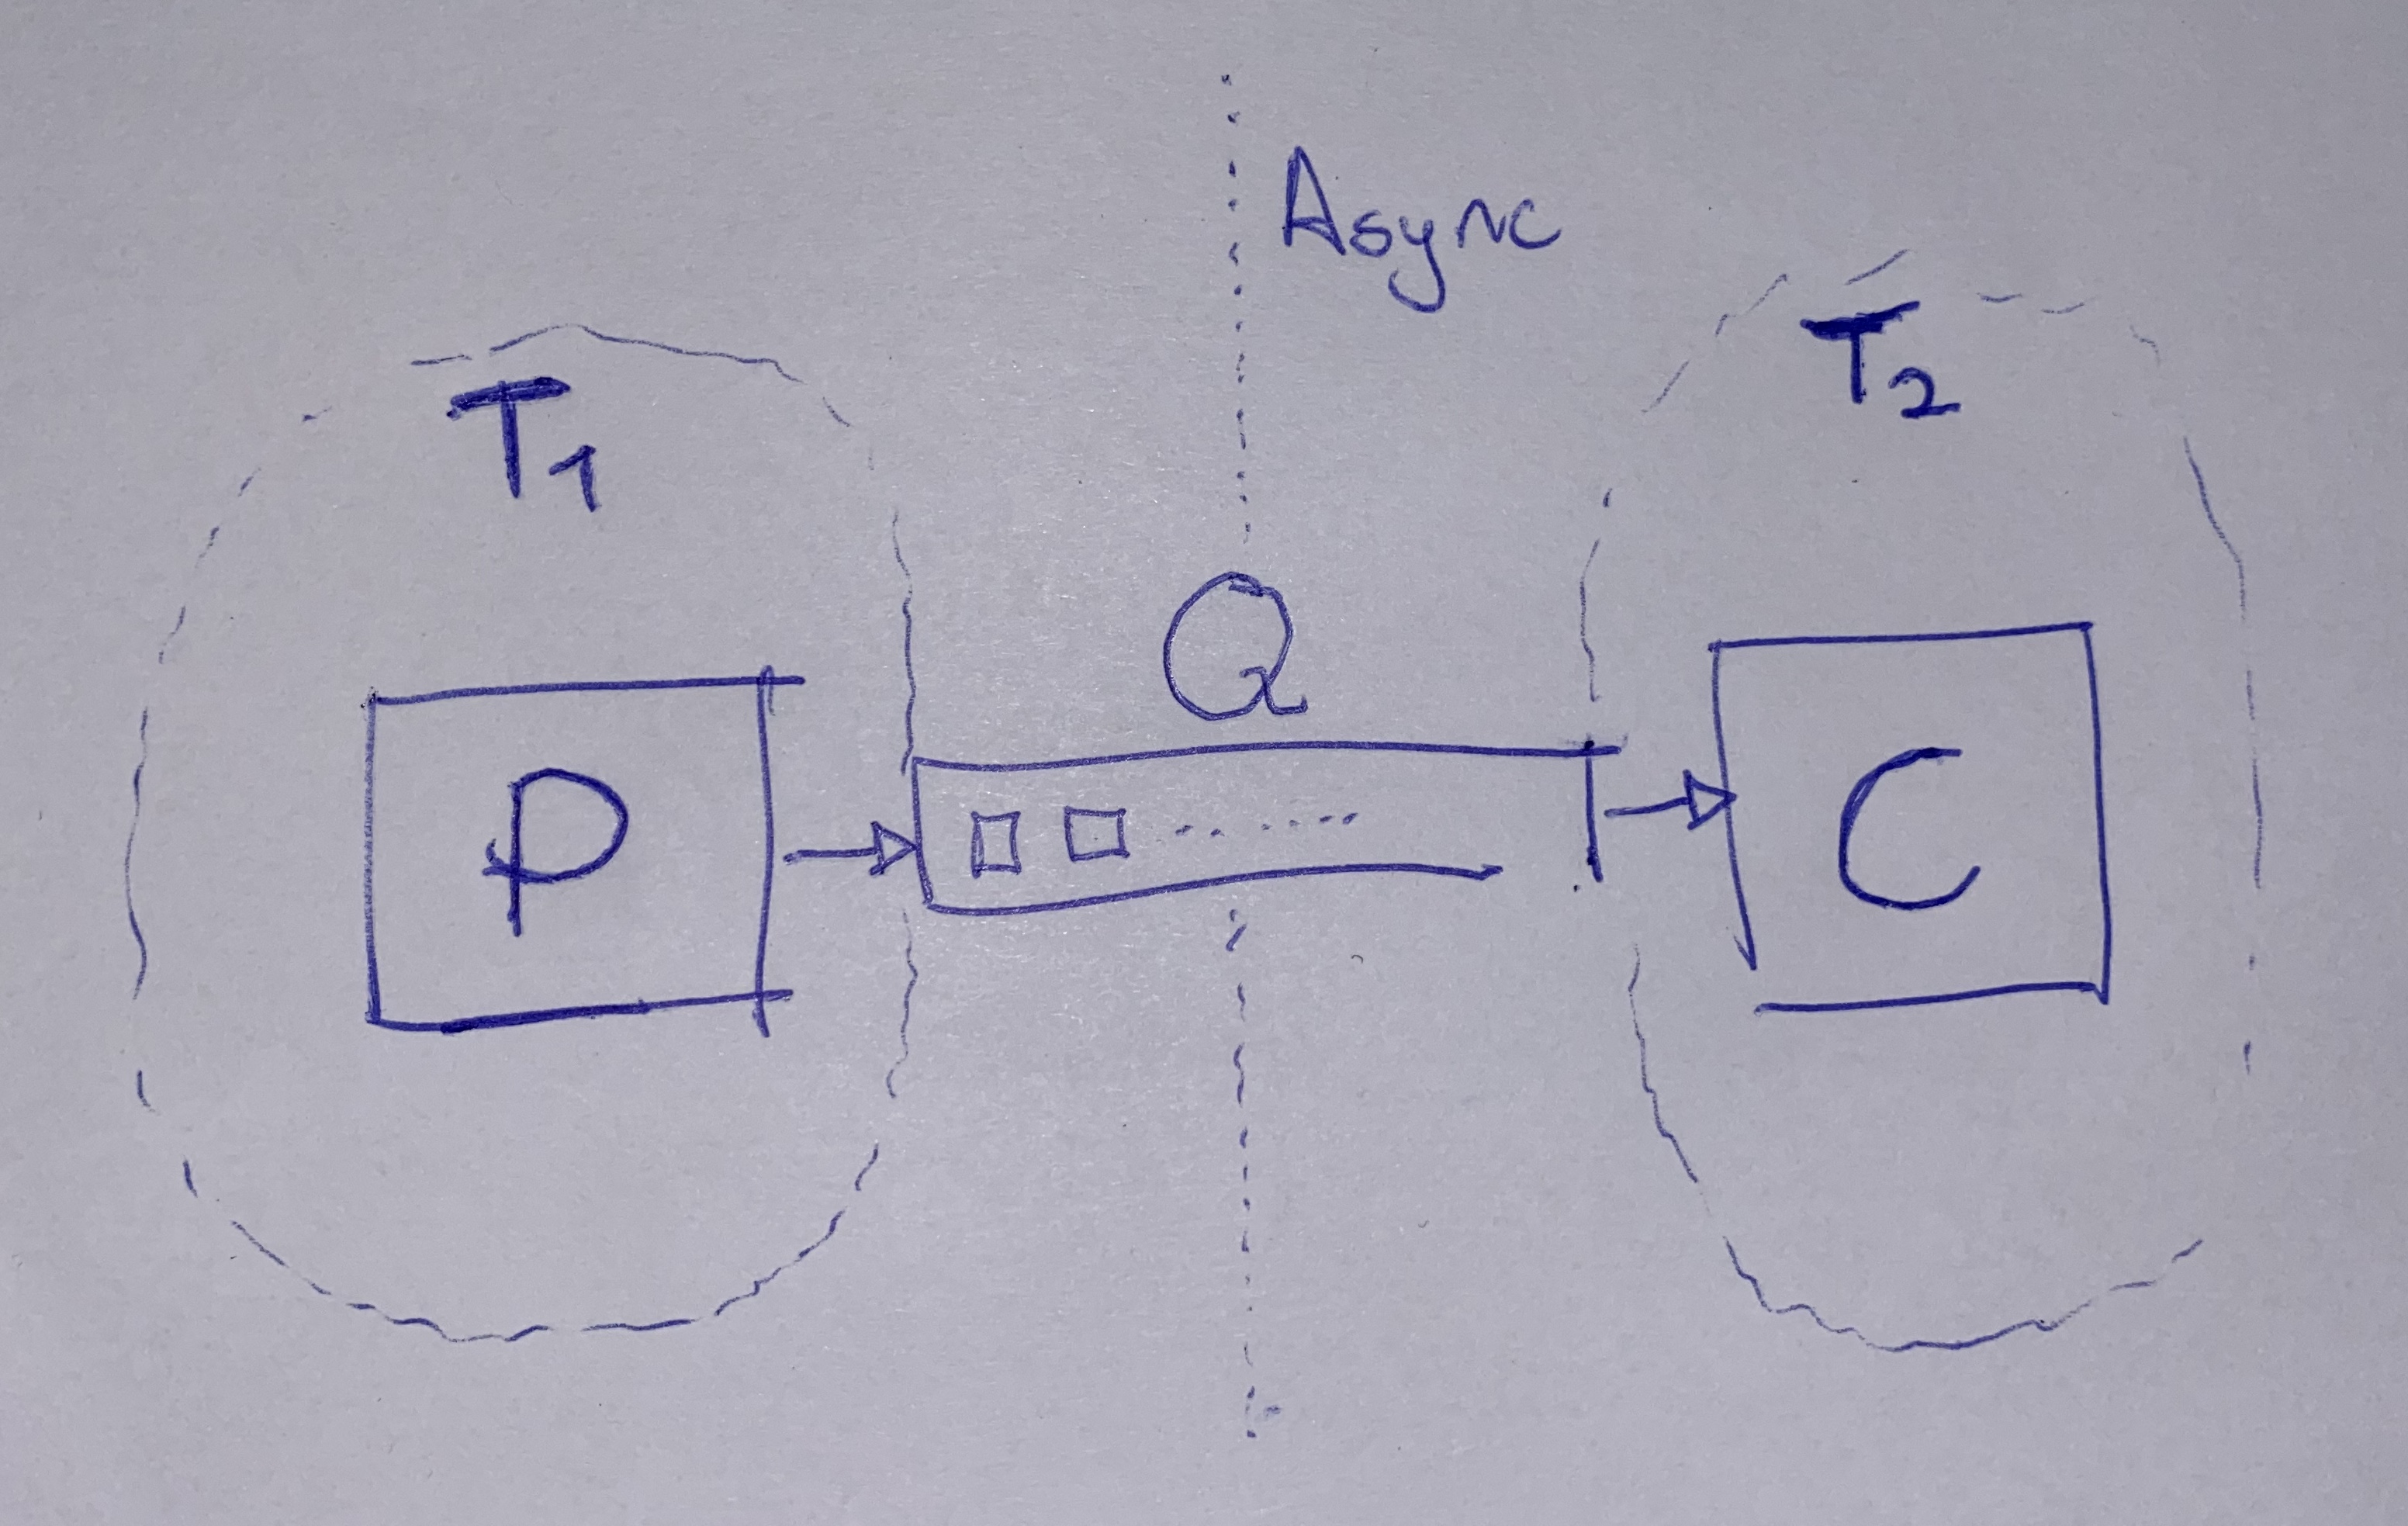 Async
T1
T2
Q
P
C